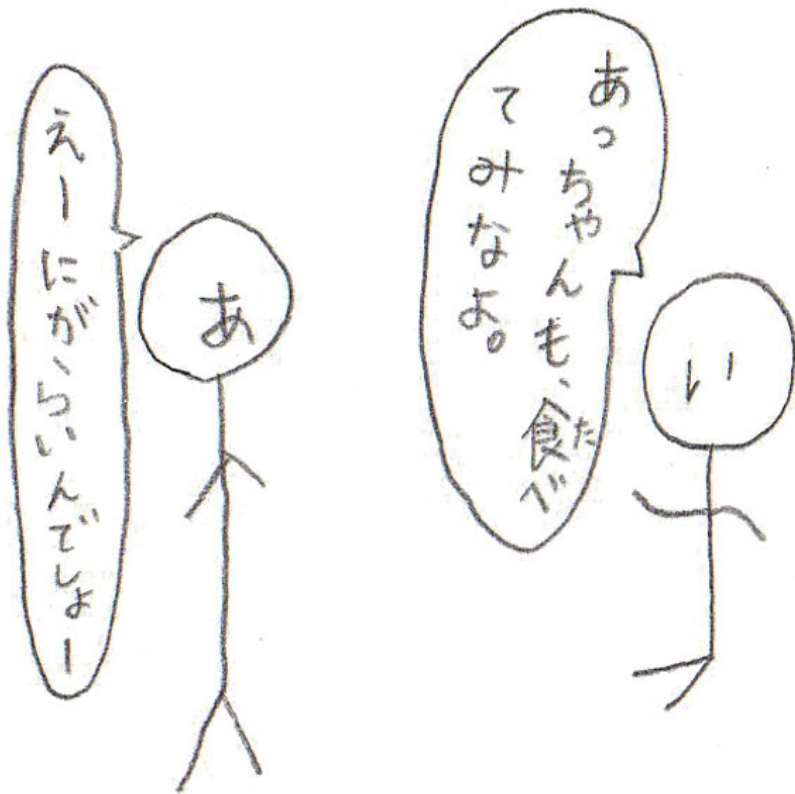 あっちゃんも、食べ
てみなよ。
い
えーにが、らいんでしょー
あ